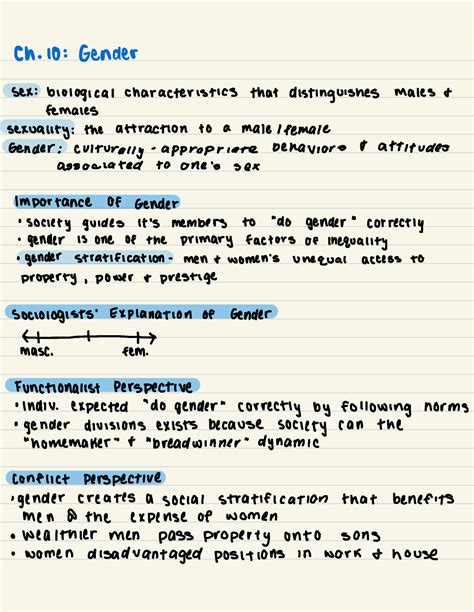 Ch. 10: Gender
sex: biological characteristics that distinguishes males &
females
sexuality: the attraction to a male/female
Gender: culturally-appropriate behaviors & attitudes
associated to one's sex
Importance of Gender
• society guides it's members to "do gender" correctly
• gender is one of the primary factors of inequality
• gender stratification- men & women's unequal access to
property, power & prestige
Sociologists' Explanation of Gender
masc. fem.
Functionalist Perspective
• Indiv. expected "do gender" correctly by following norms
• gender divisions exists because society can the
"homemaker" & "breadwinner" dynamic
Conflict Perspective
• gender creates a social stratification that benefits
men @ the expense of women
• wealthier men pass property onto sons
• women disadvantaged positions in work & house